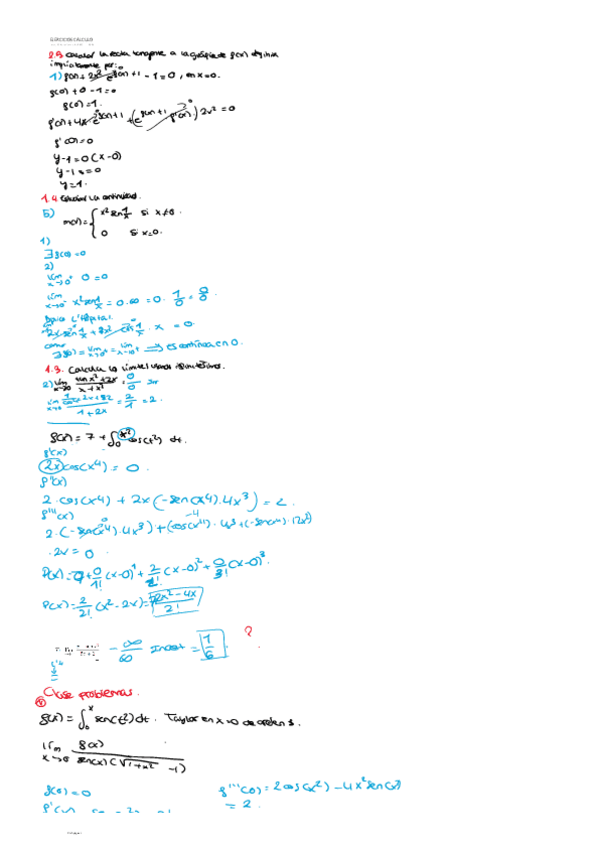 EJERCICIOS CALCULO
2.9 Calcular la recta tangente a la gráfica de f(x) definida
implícitamente por:
1) f(x) + 2x² e^f(x)+1 - 1 = 0, en x=0.
f(0) + 0 - 1 = 0
f(0) = 1.
f'(x) + 4x e^f(x)+1 + (e^f(x)+1 · f'(x)) 2x² = 0
f'(0) = 0
y-1 = 0(x-0)
y-1 = 0
y = 1.
1.4 Estudiar la continuidad.
5) m(x) = { x² sen 1/x si x≠0.
0 si x=0.
1)
∃ f(0) = 0
2)
lim x→0⁺ 0 = 0
lim x→0⁻ x² sen 1/x = 0·∞ = 0· 1/0 = 0/0.
2x sen 1/x + x² cos 1/x · x = 0
como ∃ f(0) = lim x→0⁺ = lim x→0⁻ ⟹ es continua en 0.
1.3. Calcula los límites usando infinitésimos.
2) lim x→0 sen x² + 2x / x + x² = 0/0
= 2/1 = 2.
1 + 2x
f(x) = 7 + ∫₀^x² cos(t²) dt.
f'(x)
2x cos(x⁴) = 0.
f''(x)
2·cos(x⁴) + 2x(-sen(x⁴)·4x³) = 2.
f'''(x)
2·(-sen(x⁴)·4x³) + (cos(x⁴)· 4x³ + (-sen(x⁴)·12x²)
·2x = 0
P(x) = 7 + 0/1! (x-0)¹ + 2/2! (x-0)² + 0/3! (x-0)³
P(x) = 2/2! (x² - 2x) = 2x² - 4x / 2!
- ∞/∞ Indet = 1/6. ?
Clase problemas.
f(x) = ∫₀^x sen(t²) dt. Taylor en x=0 de orden 3.
lim x→0 f(x) / sen(x)(√1+x² - 1)
f(0) = 0
f'''(0) = 2cos(x²) - 4x² sen(x²)
= 2.